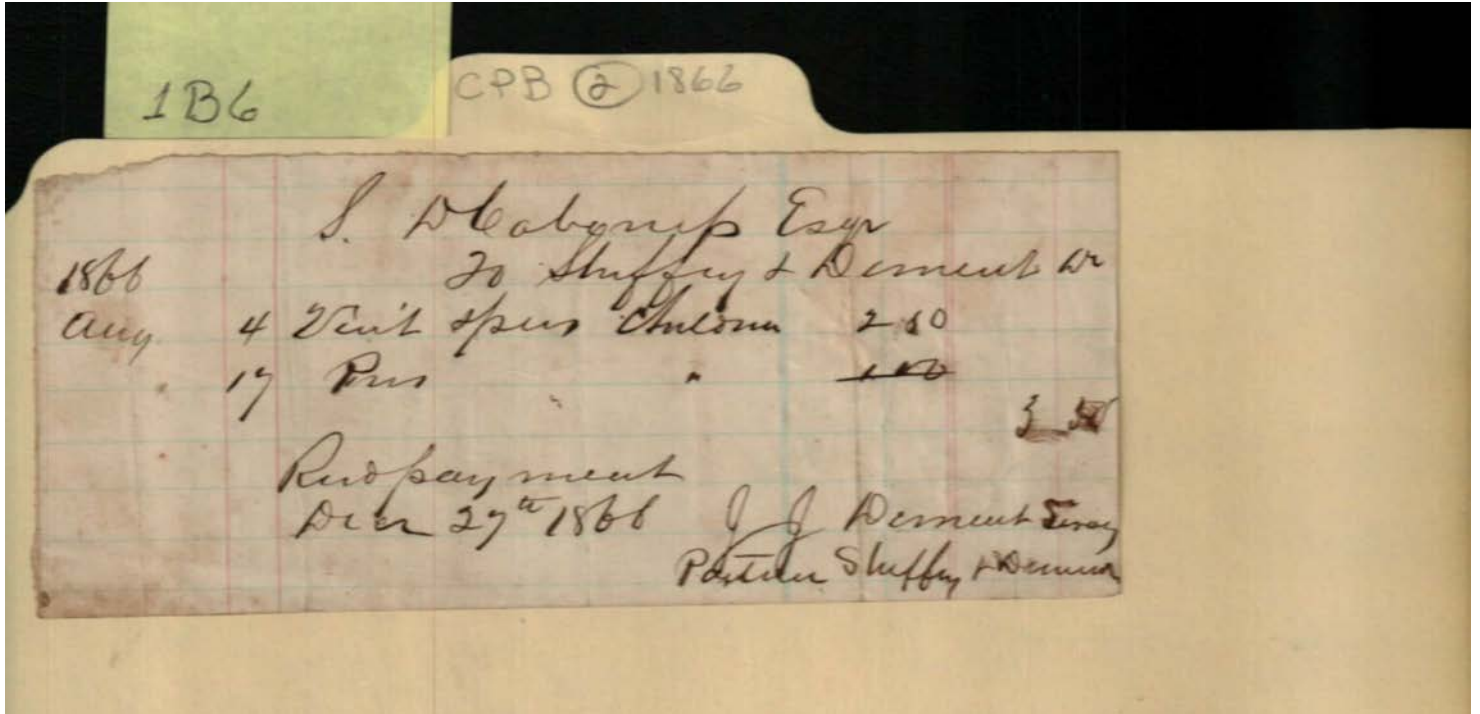 1B6
CPB ② 1866
S. D Cabaniss Esqr
To Sheffey & Dement Dr
1866
Aug 4 Visit & pres Children 2 50
17 Pres " 1 00
3 50
Recd payment
Decr 27th 1866 J J Dement Surv
Partner Sheffey & Dement